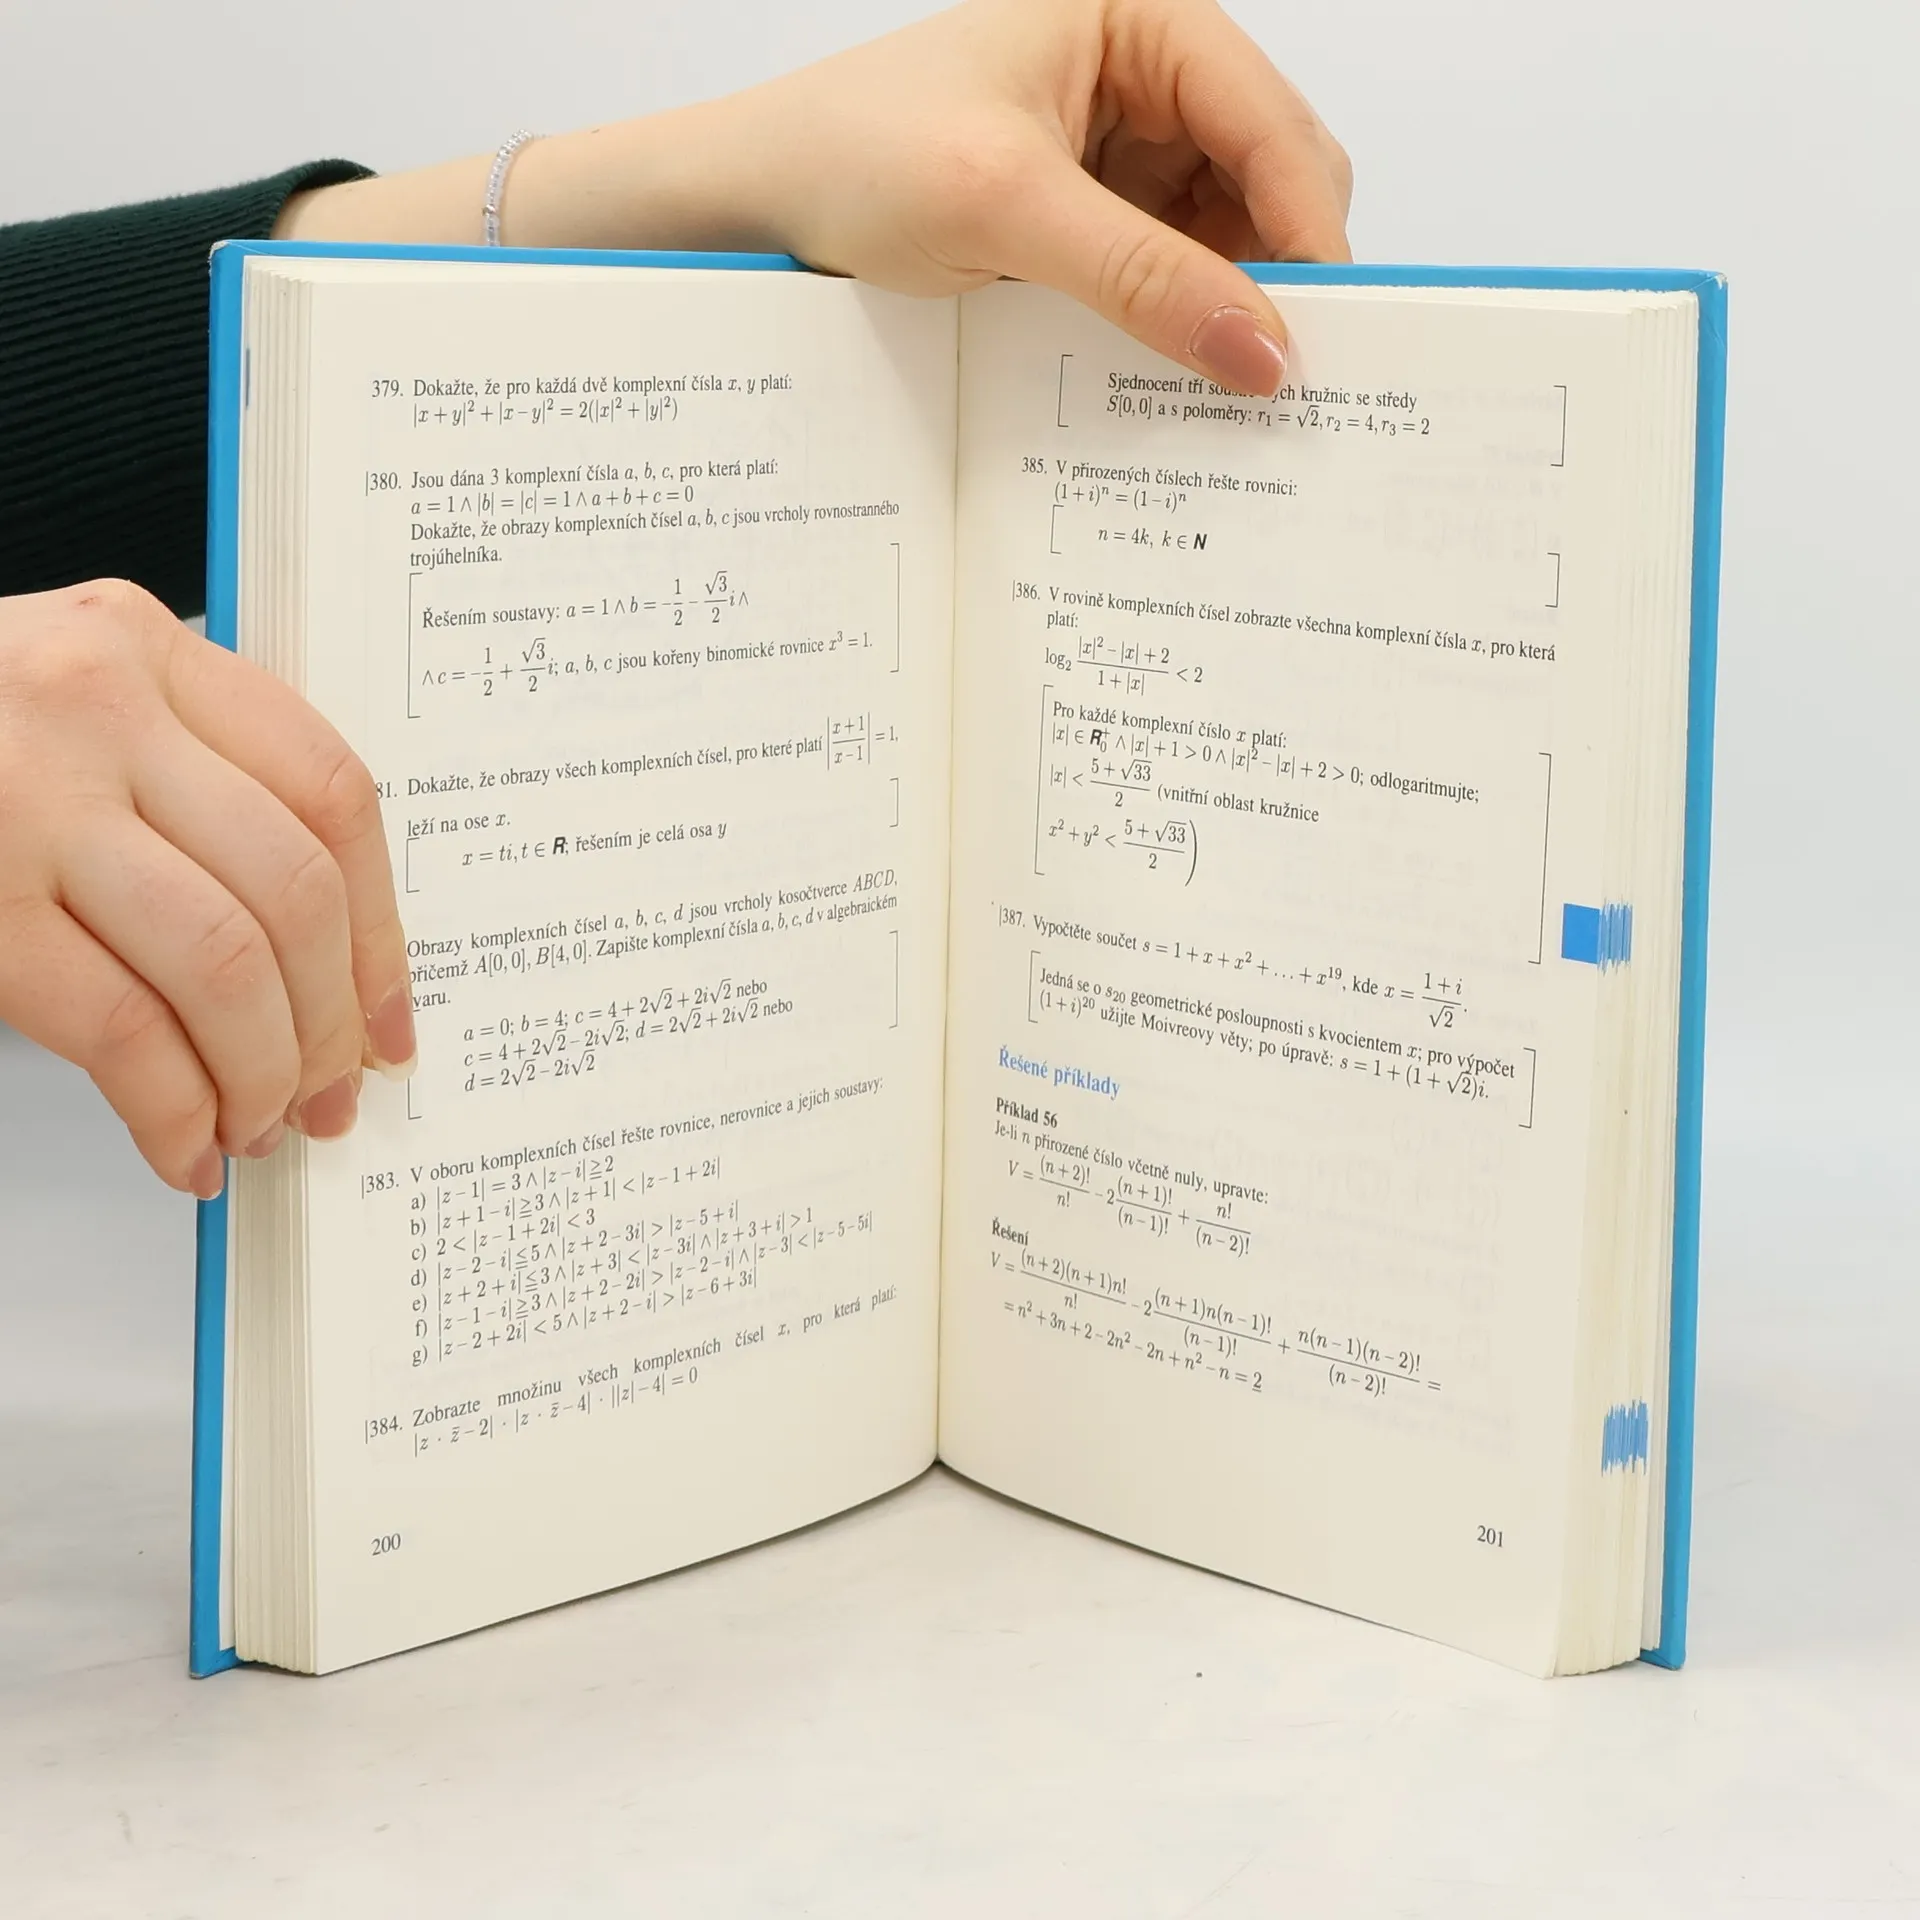 379. Dokažte, že pro každá dvě komplexní čísla x, y platí:
|x + y|² + |x − y|² = 2(|x|² + |y|²)
380. Jsou dána 3 komplexní čísla a, b, c, pro která platí:
a = 1 ∧ |b| = |c| = 1 ∧ a + b + c = 0
Dokažte, že obrazy komplexních čísel a, b, c jsou vrcholy rovnostranného
trojúhelníka.
Řešením soustavy: a = 1 ∧ b = −1/2 − √3/2 i ∧
∧ c = −1/2 + √3/2 i; a, b, c jsou kořeny binomické rovnice x³ = 1.
81. Dokažte, že obrazy všech komplexních čísel, pro které platí |(x+1)/(x−1)| = 1,
leží na ose x.
x = ti, t ∈ R; řešením je celá osa y
Obrazy komplexních čísel a, b, c, d jsou vrcholy kosočtverce ABCD,
přičemž A[0, 0], B[4, 0]. Zapište komplexní čísla a, b, c, d v algebraickém
tvaru.
a = 0; b = 4; c = 4 + 2√2 + 2i√2 nebo
c = 4 + 2√2 − 2i√2; d = 2√2 + 2i√2 nebo
d = 2√2 − 2i√2
383. V oboru komplexních čísel řešte rovnice, nerovnice a jejich soustavy:
a) |z − 1| = 3 ∧ |z − i| ≧ 2
b) |z + 1 − i| ≧ 3 ∧ |z + 1| < |z − 1 + 2i|
c) 2 < |z − 1 + 2i| < 3
d) |z − 2 − i| ≦ 5 ∧ |z + 2 − 3i| > |z − 5 + i|
e) |z + 2 + i| ≦ 3 ∧ |z + 3| < |z − 3i| ∧ |z + 3 + i| > 1
f) |z − 1 − i| ≧ 3 ∧ |z + 2 − 2i| > |z − 2 − i| ∧ |z − 3| < |z − 5 − 5i|
g) |z − 2 + 2i| < 5 ∧ |z + 2 − i| > |z − 6 + 3i|
384. Zobrazte množinu všech komplexních čísel x, pro která platí:
|z · z̄ − 2| · |z · z̄ − 4| · ||z| − 4| = 0
200
Sjednocení tří kružnic se středy
S[0, 0] a s poloměry: r₁ = √2, r₂ = 4, r₃ = 2
385. V přirozených číslech řešte rovnici:
(1 + i)ⁿ = (1 − i)ⁿ
n = 4k, k ∈ N
386. V rovině komplexních čísel zobrazte všechna komplexní čísla x, pro která
platí:
log₂ (|x|² − |x| + 2)/(1 + |x|) < 2
Pro každé komplexní číslo x platí:
|x| ∈ R₀⁺ ∧ |x| + 1 > 0 ∧ |x|² − |x| + 2 > 0; odlogaritmujte;
|x| < (5 + √33)/2 (vnitřní oblast kružnice
x² + y² < (5 + √33)/2)
387. Vypočtěte součet s = 1 + x + x² + … + x¹⁹, kde x = (1 + i)/√2.
Jedná se o s₂₀ geometrické posloupnosti s kvocientem x; pro výpočet
(1 + i)²⁰ užijte Moivreovy věty; po úpravě: s = 1 + (1 + √2)i.
Řešené příklady
Příklad 56
Je-li n přirozené číslo včetně nuly, upravte:
V = (n + 2)!/n! − 2 (n + 1)!/(n − 1)! + n!/(n − 2)!
Řešení
V = (n + 2)(n + 1)n!/n! − 2 (n + 1)n(n − 1)!/(n − 1)! + n(n − 1)(n − 2)!/(n − 2)! =
= n² + 3n + 2 − 2n² − 2n + n² − n = 2
201